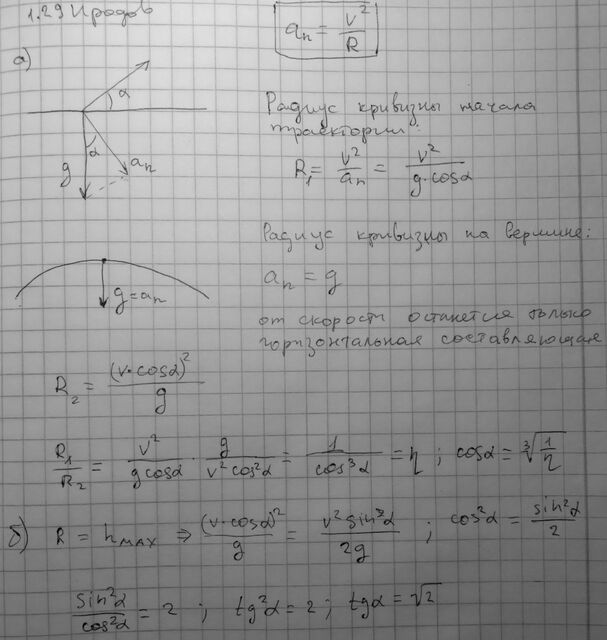 1.29 Иродов
aₙ = v²/R
а)
α
α
g
aₙ
Радиус кривизны начала
траектории:
R₁ = v²/aₙ = v²/(g·cosα)
Радиус кривизны на вершине:
aₙ = g
g = aₙ
от скорости останется только
горизонтальная составляющая
R₂ = (v·cosα)²/g
R₁/R₂ = v²/(g cosα) · g/(v² cos²α) = 1/(cos³α) = η ; cosα = ∛(1/η)
б) R = hмах ⇒ (v·cosα)²/g = v² sin²α/(2g) ; cos²α = sin²α/2
sin²α/cos²α = 2 ; tg²α = 2 ; tgα = √2